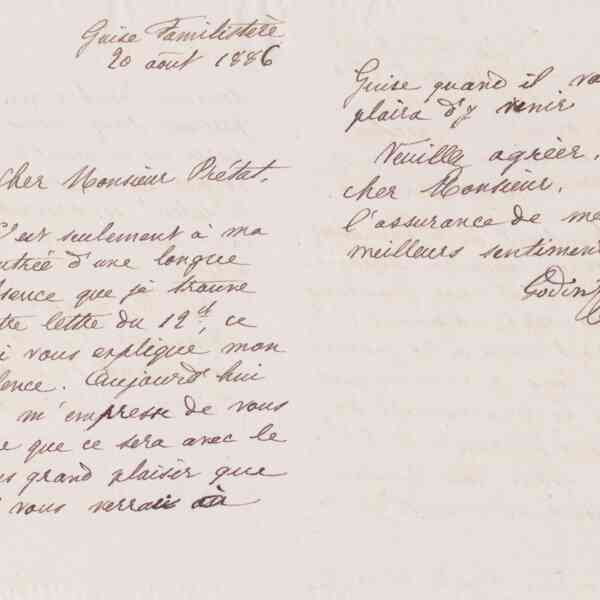 Guise Familistère
20 août 1886
Cher Monsieur Prétat.
C'est seulement à ma
ntrée d'une longue
bsence que je trouve
tre lettre du 12 ct, ce
i vous explique mon
lence. Aujourd'hui
m'empresse de vous
re que ce sera avec le
us grand plaisir que
vous verrais à
Guise quand il vo
plaira d'y venir
Veuillez agréer,
cher Monsieur,
l'assurance de me
meilleurs sentiment
Godin